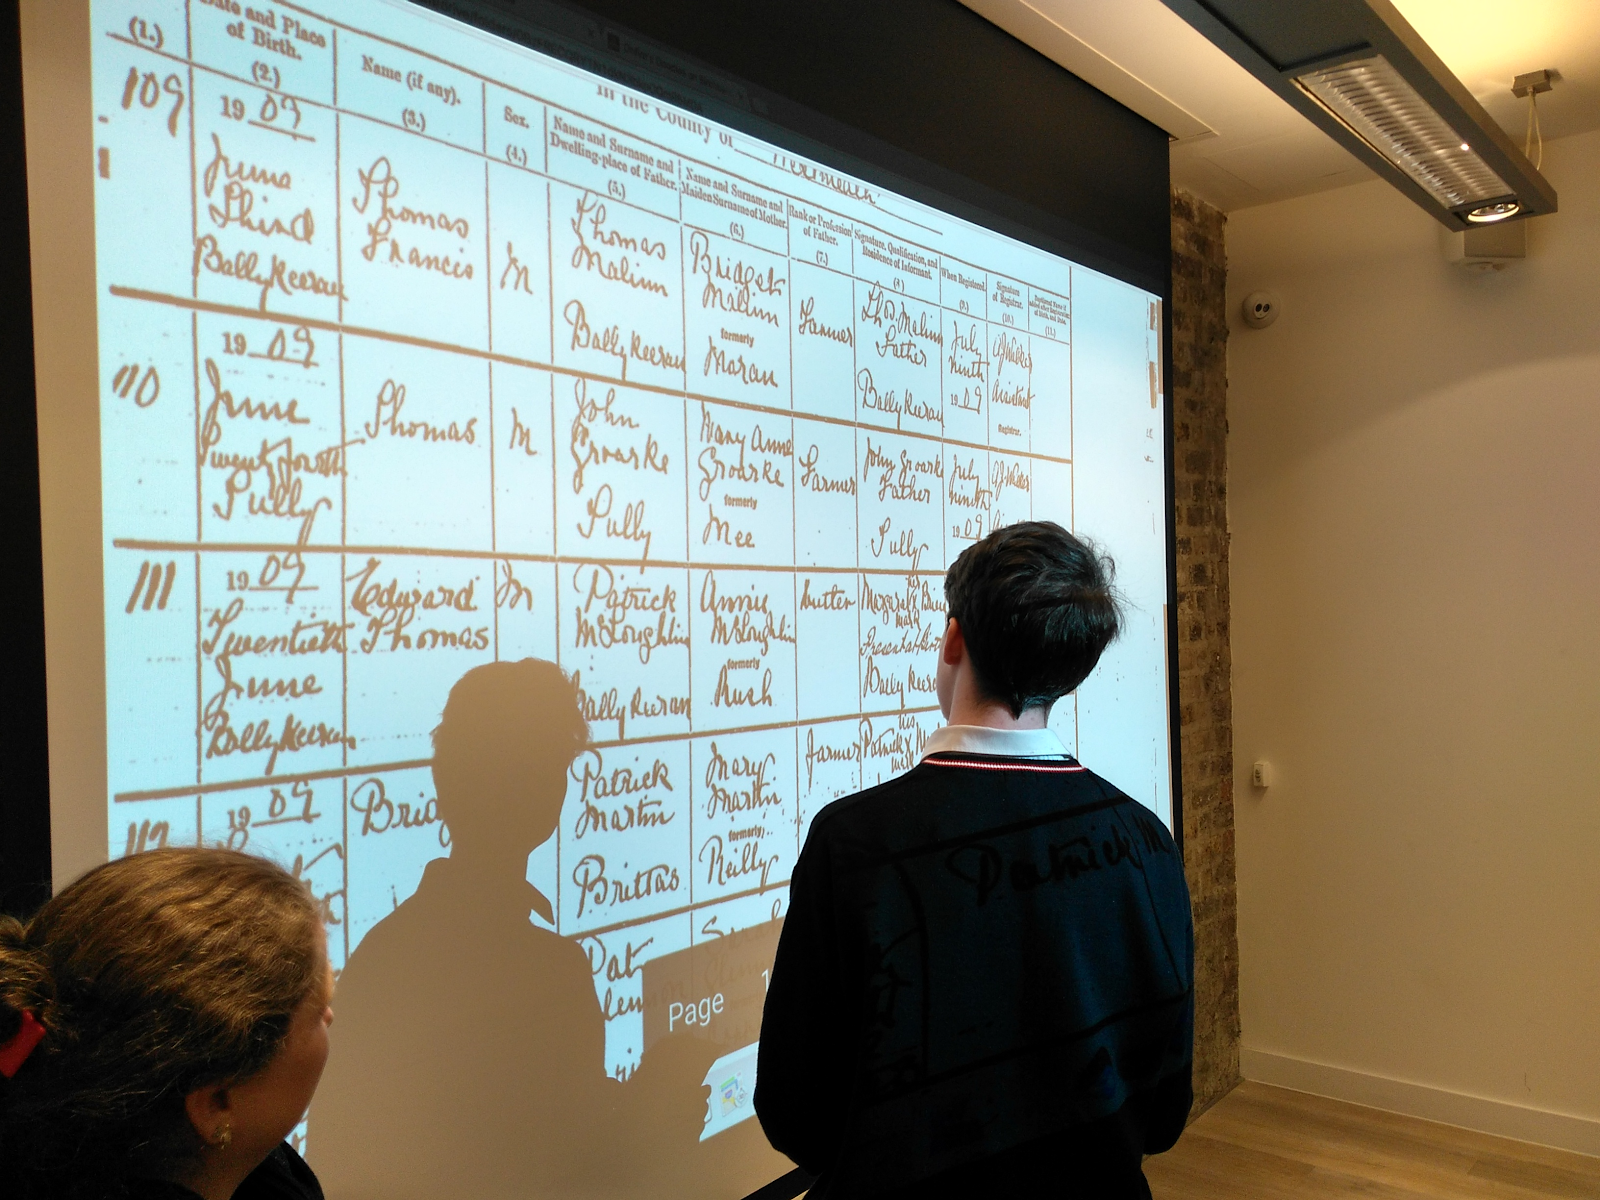 In the County of Westmeath
(1.)
Date and Place of Birth.
(2.)
Name (if any).
(3.)
Sex.
(4.)
Name and Surname and Dwelling-place of Father.
(5.)
Name and Surname and Maiden Surname of Mother.
(6.)
Rank or Profession of Father.
(7.)
Signature, Qualification, and Residence of Informant.
(8.)
When Registered.
(9.)
Signature of Registrar.
(10.)
(11.)
109
1909
June
Third
Ballykeeran
Thomas
Francis
M
Thomas
Malinn
Ballykeeran
Bridget
Malinn
formerly
Moran
Farmer
Thos. Malinn
Father
Ballykeeran
July
ninth
1909
Assistant
Registrar.
110
1909
June
Twenty fourth
Tully
Thomas
M
John
Groarke
Tully
Mary Anne
Groarke
formerly
Mee
Farmer
John Groarke
Father
Tully
July
ninth
1909
111
1909
Twentieth
June
Ballykeeran
Edward
Thomas
M
Patrick
McLoughlin
Ballykeeran
Annie
McLoughlin
formerly
Rush
Margaret
mark
Bally
112
1909
Brid
Patrick
Martin
Brittas
Mary
Martin
formerly
Reilly
Farmer
Patrick
his
mark
Patrick M
Pat
Page